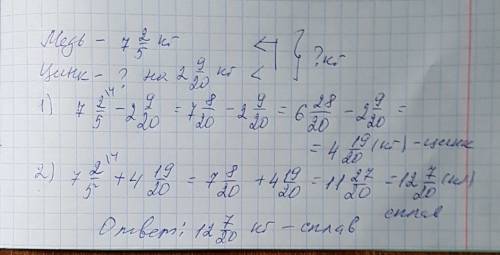 Медь - 7 2/5 кг
Цинк - ? на 2 9/20 кг < } ? кг
1) 7 2/5 - 2 9/20 = 7 8/20 - 2 9/20 = 6 28/20 - 2 9/20 =
= 4 19/20 (кг) - цинк
2) 7 2/5 + 4 19/20 = 7 8/20 + 4 19/20 = 11 27/20 = 12 7/20 (кг)
сплав
Ответ: 12 7/20 кг - сплав